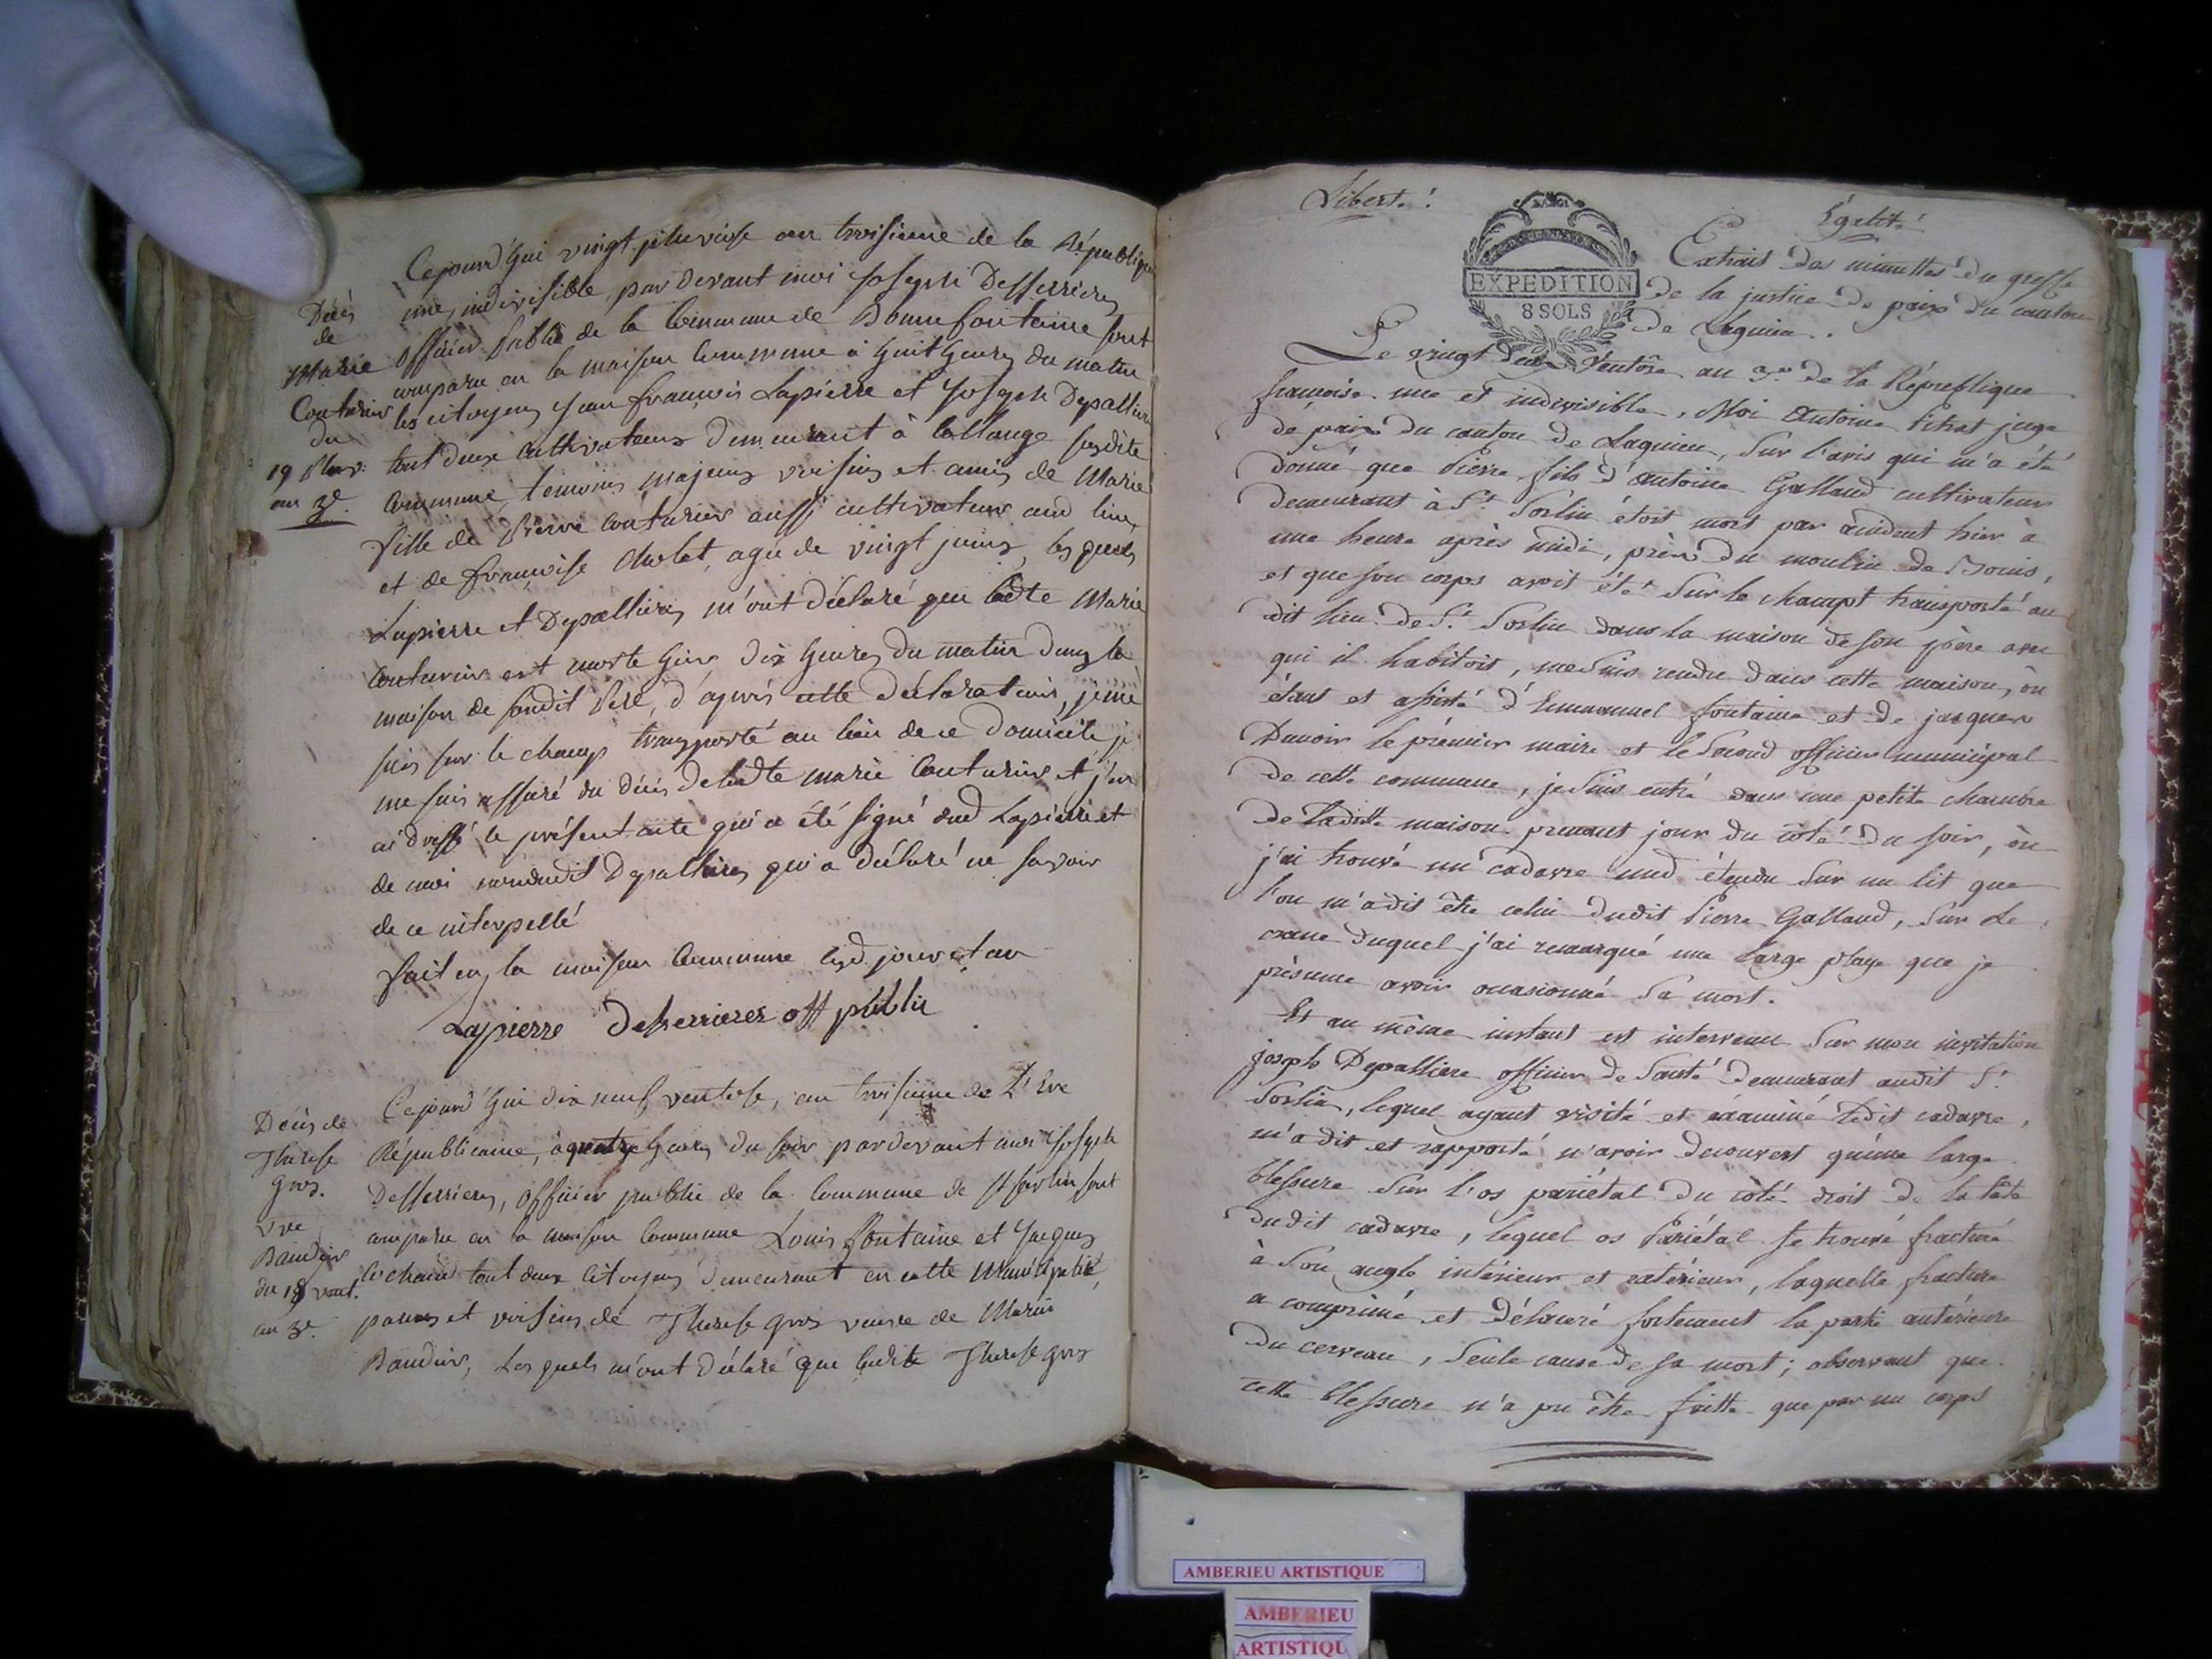 Cejourd'hui vingt pluviose an troisieme de la République
une, indivisible, par devant moi Joseph Desserrieres
officier Public de la Commune de Bonne fontaine sont
comparu en la maison Commune à huit heures du matin
les citoyens jean françois Lapierre et Joseph Depalliere
tout deux cultivateurs demeurant à susdite
Commune, temoins majeurs voisins et amis de Marie
fille de Pierre Couturier aussi cultivateur aud lieu,
et de françoise Cholet, agée de vingt jours, les quels
Lapierre et Depallieres m'ont déclaré que ladte Marie
Couturier est morte hier dix heures du matin dans la
maison de sondit Pere, d'après cette déclaration, je me
suis sur le champ transporté au lieu de ce Domicile je
me suis assuré du décès de ladte marie Couturier et j'en
ai dressé le présent acte qui a été signé dud Lapierre et
de moi nondudit Depallieres qui a déclaré ne savoir
de ce interpellé
fait en la maison Commune lesd. jour et an
Lapierre Desserrieres off public
Décès
de
Marie
Couturier
du
19 Pluv:
an 3e.
Cejourd'hui dix neuf ventose, an troisieme de L'Ere
Républicaine, à quatre heures du soir pardevant moi Joseph
Desserrieres, officier public de la Commune de St sorlin sont
comparu en la maison Commune Louis fontaine et Jacques
tout deux Citoyens demeurant en cette Municipalité,
parens et voisins de Therese gros veuve de Marin
Baudin, Les quels m'ont déclaré que ladite Therese gros
Décès de
Therese
gros.
vve
Baudin
du 18 vent.
an 3e.
Liberté!
Égalité!
EXPEDITION
8 SOLS
Extrait des minuttes du greffe
de la justice de paix du canton
de Lagnieu.
Le vingt deux Ventôse an 3e. de la République
francoise une et indivisible, Moi Antoine juge
de paix du canton de Lagnieu, Sur l'avis qui m'a été
donné que Pierre, fils d'Antoine Galland cultivateur
demeurant à St. Sorlin étoit mort par accident hier à
une heure après midi, près du moulin de
et que son corps avoit été sur le champt transporté au
dit lieu de St. Sorlin dans la maison de son père avec
qui il habitoit, me suis rendu dans cette maison, où
étant et assisté d'Emmanuel fontaine et de jacques
le prémier maire et le Second officier municipal
de cette commune, je suis entré dans une petite chambre
de Laditte maison prenant jour du côté du soir, où
j'ai trouvé un cadavre nud étendu sur un lit que
l'on m'a dit être celui dudit Pierre Galland, sur Le
crane duquel j'ai remarqué une large playe que je
présume avoir occasionné sa mort.
Et au même instant est intervenu sur mon invitation
joseph Depalliere officier de Santé demeurant audit St.
Sorlin, lequel ayant visité et éxaminé ledit cadavre,
m'a dit et rapporté n'avoir decouvert qu'une large
blessure sur l'os pariétal du côté droit de la tête
dudit cadavre, lequel os Pariétal se trouvé fracturé
à son angle intérieur et extérieur, laquelle fracture
a comprimé et délaceré fortement la partie antérieure
du cerveau, seule cause de sa mort; observant que
cette blessure n'a pu être faitte que par un corps
AMBERIEU ARTISTIQUE
AMBERIEU
ARTISTIQU